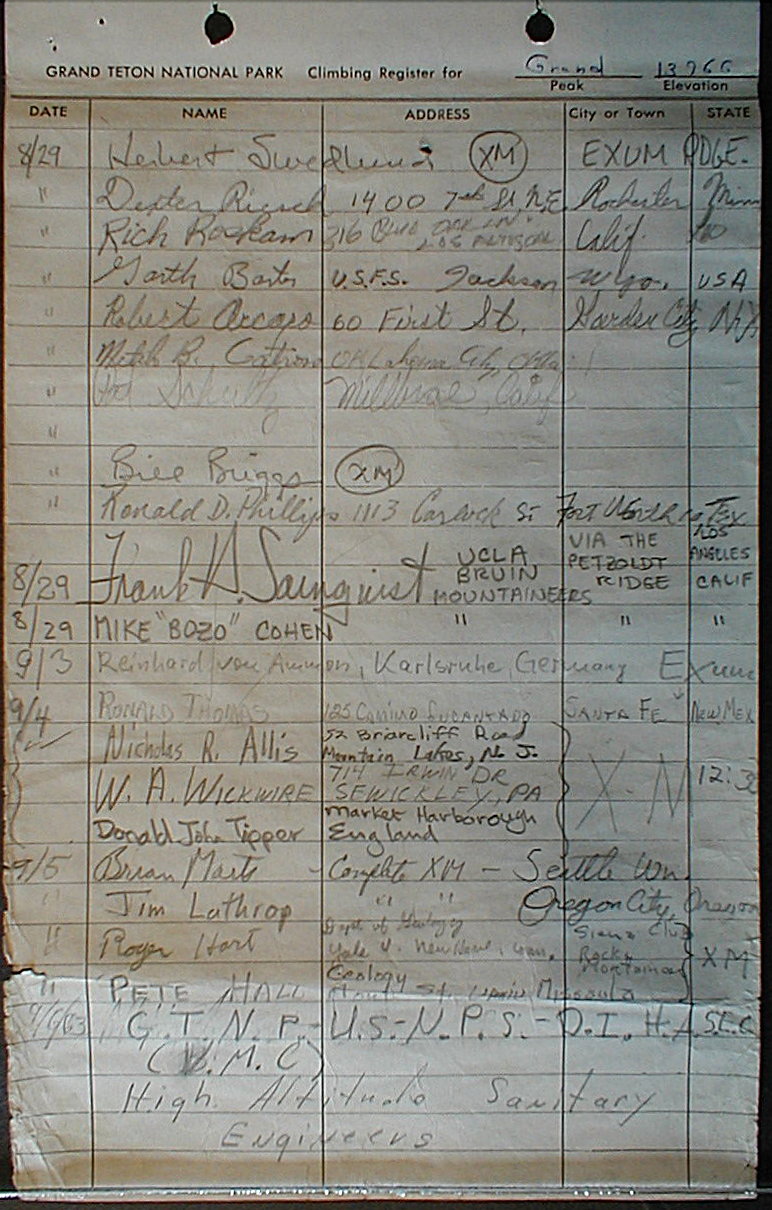 GRAND TETON NATIONAL PARK Climbing Register for Grand 13766
Peak Elevation
DATE NAME ADDRESS City or Town STATE
8/29 Herbert Swedlund XM EXUM RDGE.
" Dexter 1400 7th St N.E. Rochester Minn
" Rich 316 Calif.
" Garth U.S.F.S. Jackson Wyo. USA
" Robert 60 First St. Garden City N.Y.
" B. Oklahoma City, Okla.
" Schultz Millbrae, Calif
"
" Bill Briggs XM
" Ronald D. Phillips 1113 St Fort Worth Tex
8/29 Frank H. UCLA BRUIN MOUNTAINEERS VIA THE PETZOLDT RIDGE LOS ANGELES CALIF
8/29 MIKE "BOZO" COHEN " " "
9/3 Reinhard von Ammon, Karlsruhe, Germany Exum
9/4 RONALD THOMAS 125 CAMINO ENCANTADO SANTA FE NEW MEX
Nicholas R. Allis 52 Briarcliff Road
Mountain Lakes, N. J.
W. A. WICKWIRE 714 IRWIN DR
SEWICKLEY, PA X-M 12:3
Donald John Tipper Market Harborough
England
9/5 Brian Marts - Complete XM - Seattle Wn.
" Jim Lathrop " " Oregon City, Oregon
" Roger Hart Dept of Geology
Yale U. New Haven, Conn. Sierra Club
Rocky XM
" PETE HALL Geology
Missoula
9/6/63 G.T.N.P.-U.S.-N.P.S.-D.I.H.A.S.E.C
(B.M.C)
High Altitude Sanitary
Engineers